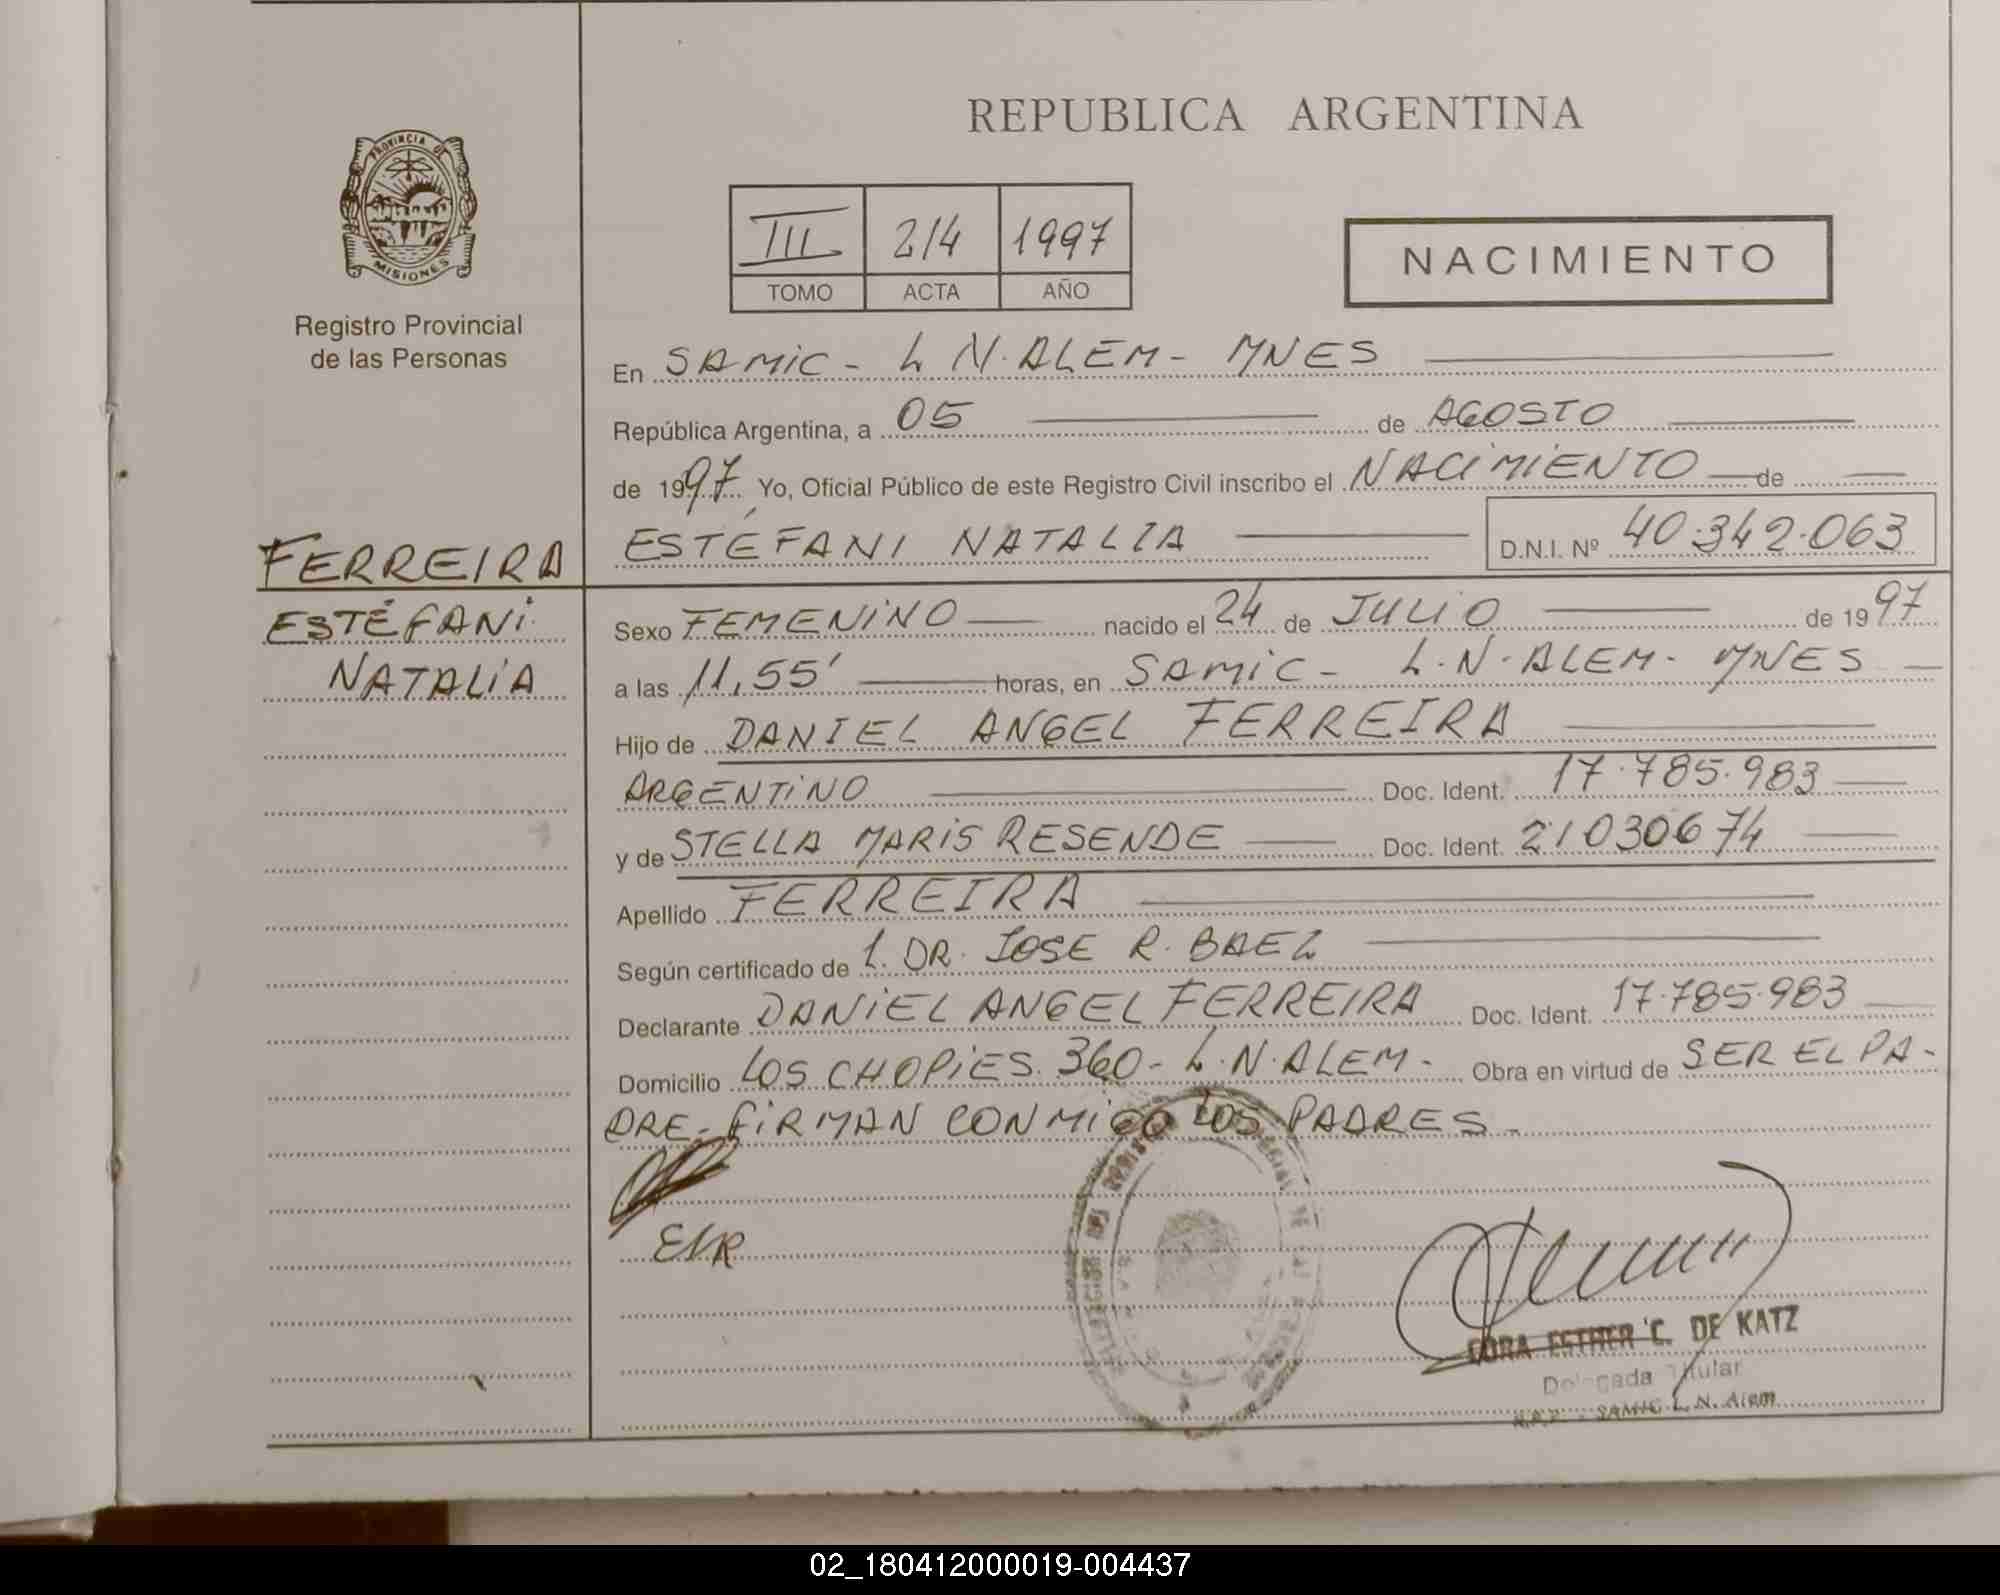 REPUBLICA ARGENTINA
PROVINCIA DE
MISIONES
Registro Provincial
de las Personas
III 214 1997
TOMO ACTA AÑO
NACIMIENTO
En SAMIC - L N. ALEM - MNES
República Argentina, a 05 de AGOSTO
de 1997. Yo, Oficial Público de este Registro Civil inscribo el NACIMIENTO de
ESTÉFANI NATALIA D.N.I. Nº 40.342.063
FERREIRA
ESTÉFANI
NATALIA
Sexo FEMENINO nacido el 24 de JULIO de 1997
a las 11,55' horas, en SAMIC - L. N. ALEM - MNES
Hijo de DANIEL ANGEL FERREIRA
ARGENTINO Doc. Ident. 17.785.983
y de STELLA MARIS RESENDE Doc. Ident. 21030674
Apellido FERREIRA
Según certificado de 1. DR. JOSE R. BAEZ
Declarante DANIEL ANGEL FERREIRA Doc. Ident. 17.785.983
Domicilio LOS CHOPIES 360 - L. N. ALEM - Obra en virtud de SER EL PA-
DRE - FIRMAN CONMIGO LOS PADRES -
CORA ESTHER C. DE KATZ
Delegada Titular
SAMIC L. N. Alem
02_180412000019-004437